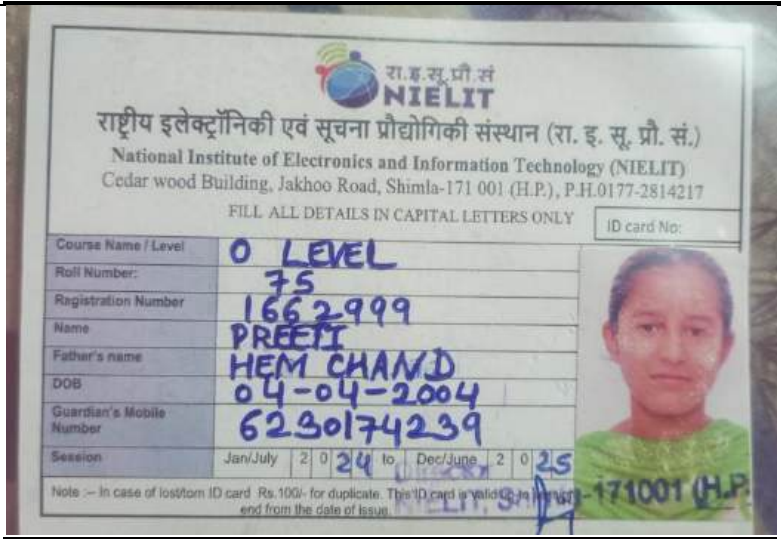 रा.इ.सू.प्रौ.सं
NIELIT
राष्ट्रीय इलेक्ट्रॉनिकी एवं सूचना प्रौद्योगिकी संस्थान (रा. इ. सू. प्रौ. सं.)
National Institute of Electronics and Information Technology (NIELIT)
Cedar wood Building, Jakhoo Road, Shimla-171 001 (H.P.), P.H.0177-2814217
FILL ALL DETAILS IN CAPITAL LETTERS ONLY
ID card No:
Course Name / Level O LEVEL
Roll Number: 75
Registration Number 1662999
Name PREETI
Father's name HEM CHAND
DOB 04-04-2004
Guardian's Mobile Number 6230174239
Session Jan/July 2024 to Dec/June 2025
Note :– In case of lost/torn ID card Rs.100/- for duplicate. This ID card is valid
end from the date of issue.
NIELIT, -171001 (H.P.